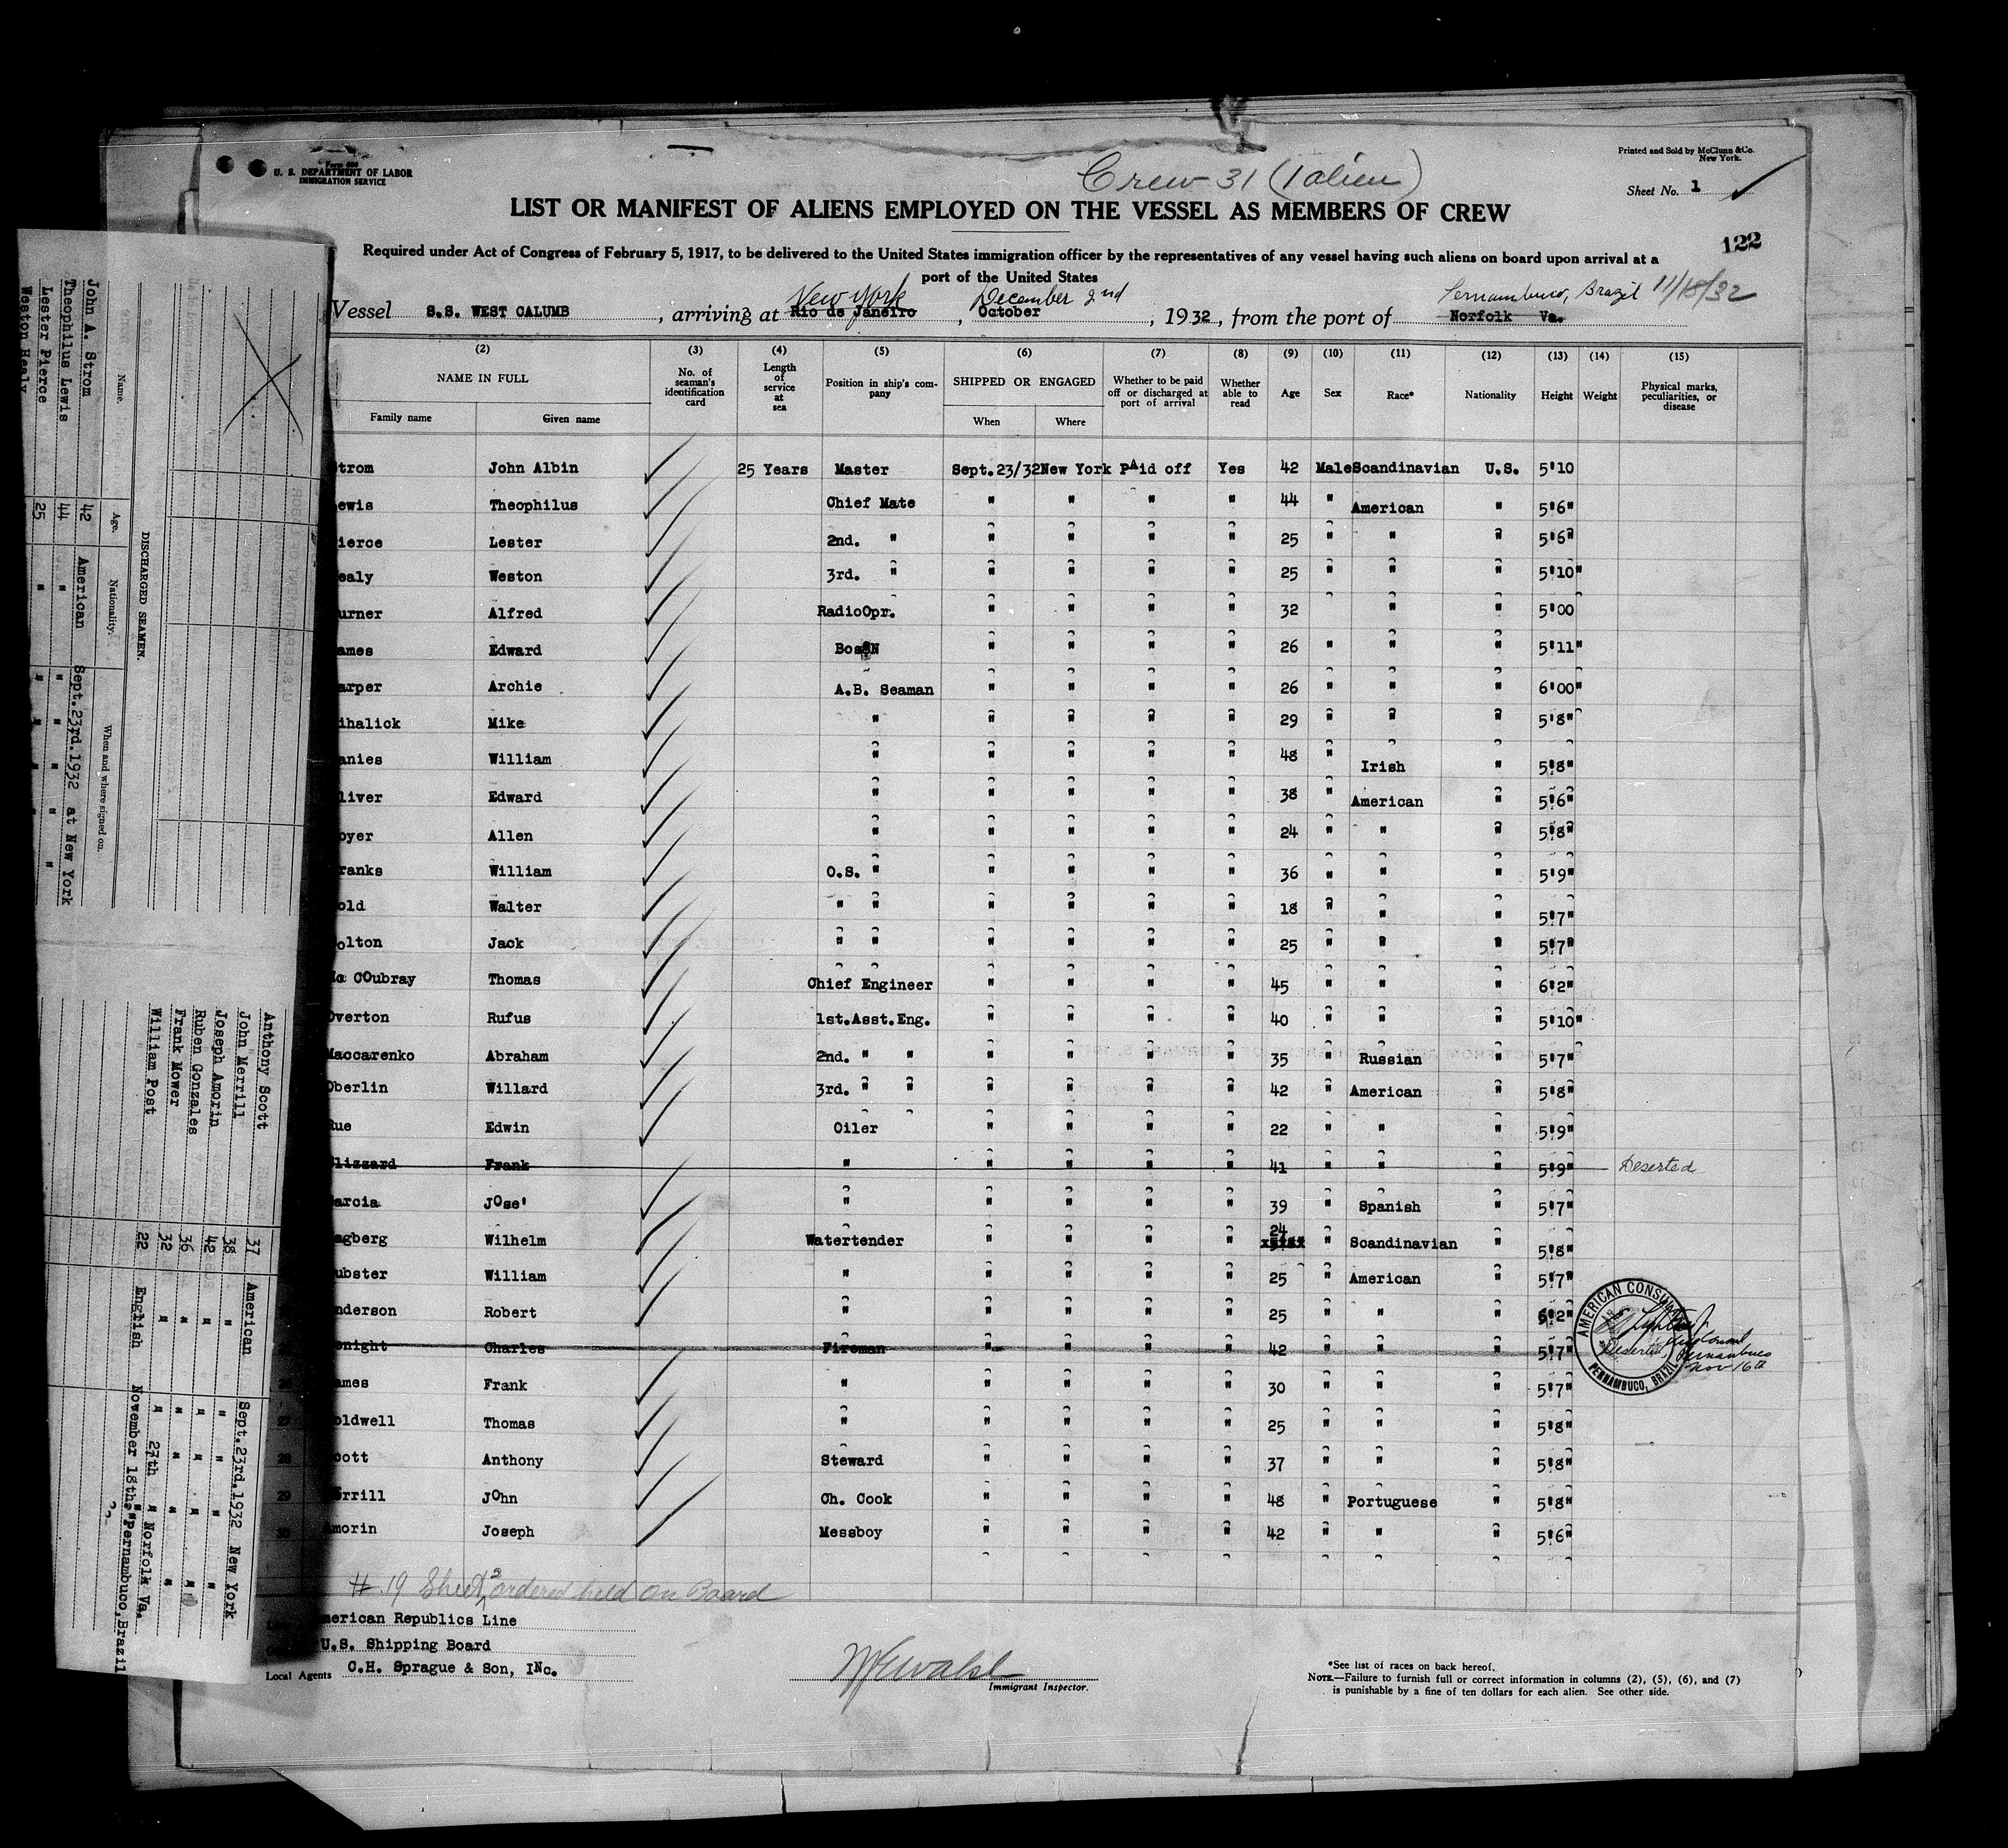 Form 689
U. S. DEPARTMENT OF LABOR
IMMIGRATION SERVICE
Crew 31 (1 alien)
Printed and Sold by McClunn & Co.
New York.
Sheet No. 1
LIST OR MANIFEST OF ALIENS EMPLOYED ON THE VESSEL AS MEMBERS OF CREW
122
Required under Act of Congress of February 5, 1917, to be delivered to the United States immigration officer by the representatives of any vessel having such aliens on board upon arrival at a
port of the United States
New York December 2nd Pernambuco, Brazil 11/18/32
Vessel S.S. WEST CALUMB, arriving at Rio de Janeiro, October, 1932, from the port of Norfolk Va.
(2) (3) (4) (5) (6) (7) (8) (9) (10) (11) (12) (13) (14) (15)
NAME IN FULL No. of seaman's identification card Length of service at sea Position in ship's company SHIPPED OR ENGAGED Whether to be paid off or discharged at port of arrival Whether able to read Age Sex Race* Nationality Height Weight Physical marks, peculiarities, or disease
Family name Given name When Where
trom John Albin 25 Years Master Sept.23/32 New York PAid off Yes 42 Male Scandinavian U.S. 5'10
ewis Theophilus Chief Mate " " " " 44 " American " 5'6"
ierce Lester 2nd. " " " " " 25 " " " 5'6"
ealy Weston 3rd. " " " " " 25 " " " 5'10"
urner Alfred RadioOpr. " " " " 32 " " 5'00
ames Edward BosSN " " " " 26 " " " 5'11"
arper Archie A.B. Seaman " " " " 26 " " " 6'00"
ihalick Mike " " " " " 29 " " " 5'8"
anies William " " " " " 48 " Irish " 5'8"
liver Edward " " " " " 38 " American " 5'6"
oyer Allen " " " " " 24 " " " 5'8"
ranks William O.S. " " " " " 36 " " " 5'9"
old Walter " " " " " " 18 " " " 5'7"
olton Jack " " " " " " 25 " " " 5'7"
Mc COubray Thomas Chief Engineer " " " " 45 " " " 6'2"
Overton Rufus 1st.Asst.Eng. " " " " 40 " " " 5'10"
Maccarenko Abraham 2nd. " " " " " " 35 " Russian " 5'7"
Oberlin Willard 3rd. " " " " " " 42 " American " 5'8"
Rue Edwin Oiler " " " " 22 " " " 5'9"
lizzard Frank " " " " " 41 " " " 5'9" Deserted
arcia JOse' " " " " " 39 " Spanish " 5'7"
agberg Wilhelm Watertender " " " " 24 " Scandinavian " 5'8"
ubster William " " " " " 25 " American " 5'7"
nderson Robert " " " " " 25 " " " 6'2"
night Charles Fireman " " " " 42 " " " 5'7" Deserted
AMERICAN CONSULAR
PERNAMBUCO, BRAZIL
Pernambuco
Nov 16th
ames Frank " " " " " 30 " " " 5'7"
27 oldwell Thomas " " " " " 25 " " " 5'8"
28 cott Anthony Steward " " " " 37 " " " 5'8"
29 errill JOhn Ch. Cook " " " " 48 " Portuguese " 5'8"
30 morin Joseph Messboy " " " " 42 " " " 5'6"
# 19 Sheet 2 ordered held on Board
merican Republics Line
U.S. Shipping Board
Local Agents C.H. Sprague & Son, INc.
Immigrant Inspector.
*See list of races on back hereof.
NOTE.—Failure to furnish full or correct information in columns (2), (5), (6), and (7)
is punishable by a fine of ten dollars for each alien. See other side.
DISCHARGED SEAMEN.
Name. Age. Nationality. When and where signed on.
John A. Strom 42 American Sept.23rd.1932 at New York
Theophilus Lewis 44 " " " "
Lester Pierce 25 " " " "
Weston Healy
Anthony Scott 37 American Sept.23rd.1932 New York
John Merrill 38 " " " "
Joseph Amorin 42 " " " "
Ruben Gonzales 36 " " " "
Frank Mower 32 " " 27th " Norfolk Va.
William Post 22 English November 18th." Pernambuco,Brazil